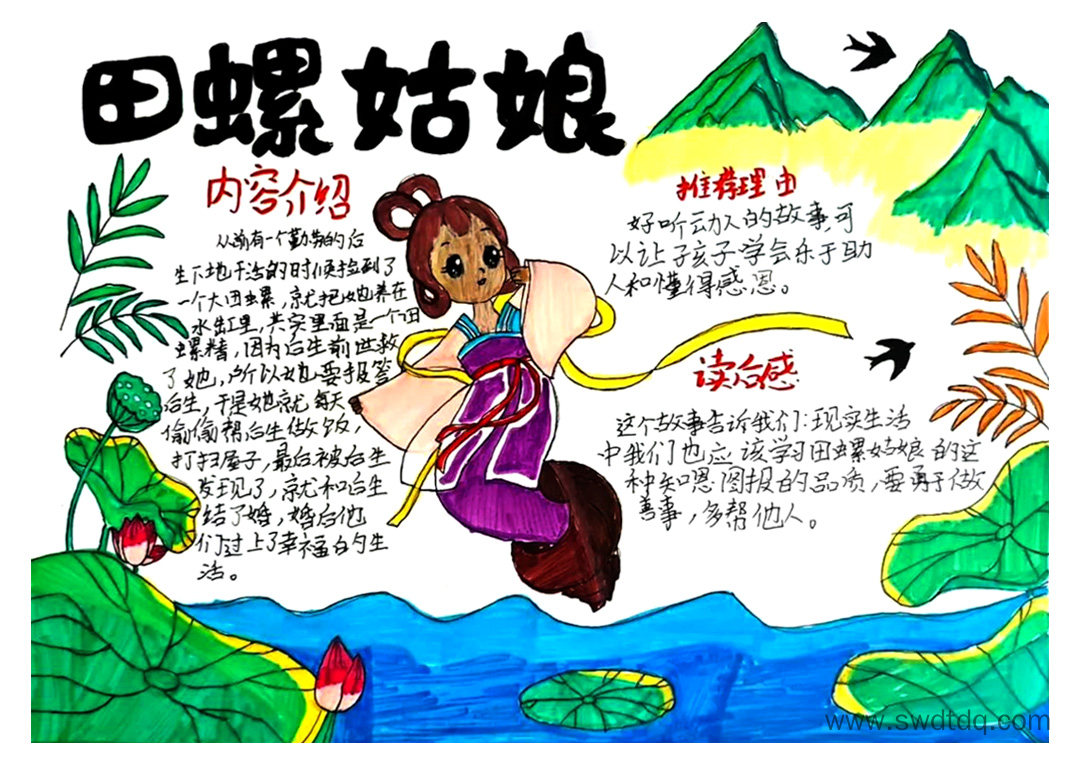 田螺姑娘
内容介绍
从前有一个勤劳的后
生下地干活的时候捡到了
一个大田螺，就把她养在
水缸里，其实里面是一个田
螺精，因为后生前世救
了她，所以她要报答
后生，于是她就每天
偷偷帮后生做饭，
打扫屋子，最后被后生
发现了，就和后生
结了婚，婚后他
们过上了幸福的生
活。
推荐理由
好听动人的故事，可
以让子孩子学会乐于助
人和懂得感恩。
读后感
这个故事告诉我们：现实生活
中我们也应该学习田螺姑娘的这
种知恩图报的品质，要勇于做
善事，多帮他人。
www.swdtdq.com